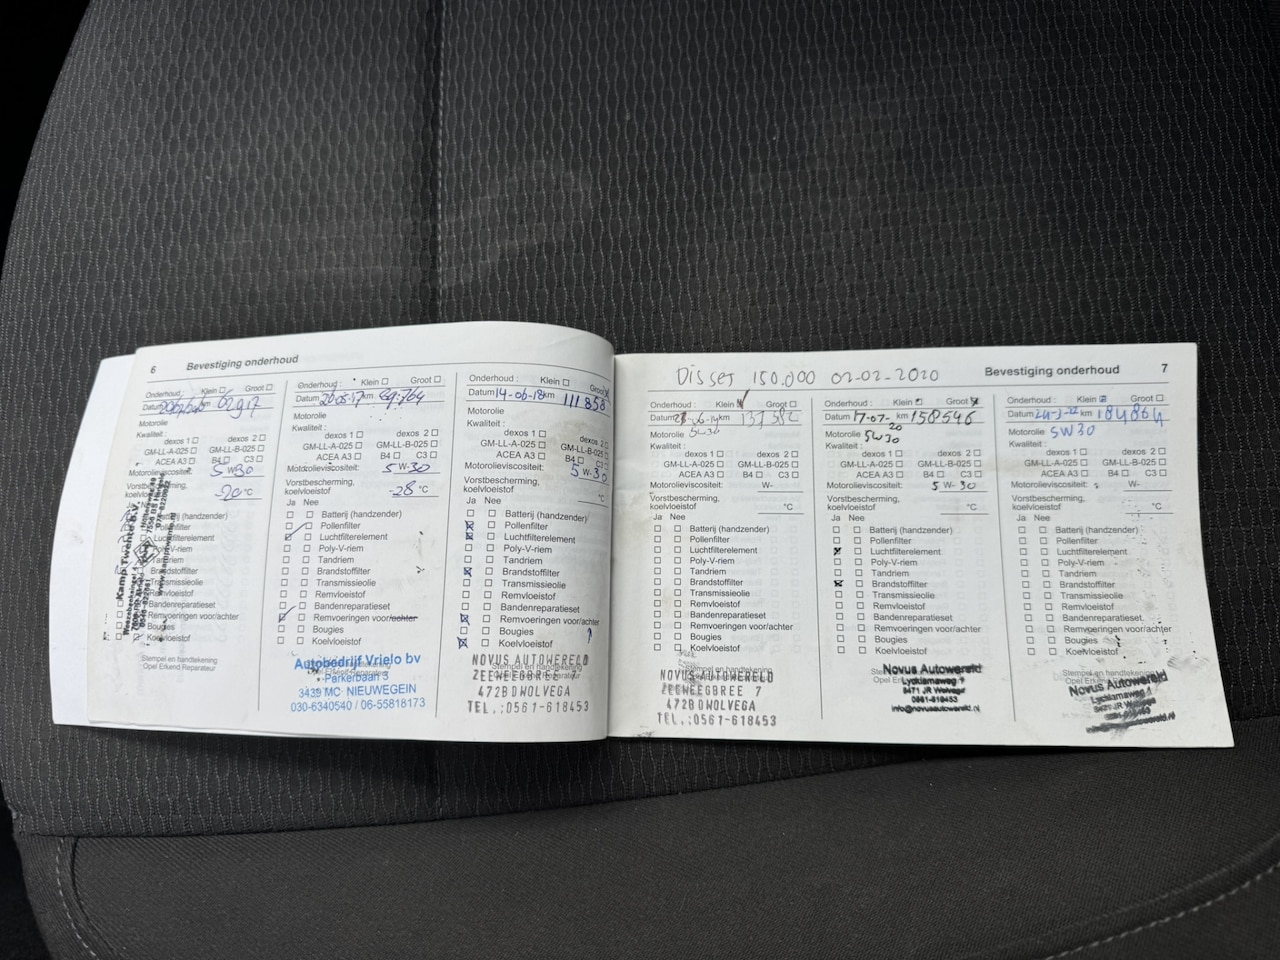 6 Bevestiging onderhoud
Onderhoud : Klein ☐ Groot ☐
Datum km
Motorolie
Kwaliteit :
dexos 1 ☐ dexos 2 ☐
GM-LL-A-025 ☐ GM-LL-B-025 ☐
ACEA A3 ☐ B4 ☐ C3 ☐
Motorolieviscositeit: 5 W-30
Vorstbescherming,
koelvloeistof -20 °C
Batterij (handzender)
Pollenfilter
Luchtfilterelement
Poly-V-riem
Tandriem
Brandstoffilter
Transmissieolie
Remvloeistof
Bandenreparatieset
Remvoeringen voor/achter
Bougies
Koelvloeistof
Stempel en handtekening
Opel Erkend Reparateur
Kamp Twente B.V.
Onderhoud : Klein ☐ Groot ☐
Datum km
Motorolie
Kwaliteit :
dexos 1 ☐ dexos 2 ☐
GM-LL-A-025 ☐ GM-LL-B-025 ☐
ACEA A3 ☐ B4 ☐ C3 ☐
Motorolieviscositeit: 5 W-30
Vorstbescherming,
koelvloeistof -28 °C
Ja Nee
Batterij (handzender)
Pollenfilter
Luchtfilterelement
Poly-V-riem
Tandriem
Brandstoffilter
Transmissieolie
Remvloeistof
Bandenreparatieset
Remvoeringen voor/achter
Bougies
Koelvloeistof
Autobedrijf Vrielo bv
Parkerbaan 3
3439 MC NIEUWEGEIN
030-6340540 / 06-55818173
Onderhoud : Klein ☐ Groot
Datum 14-06-18 km 111858
Motorolie
Kwaliteit :
dexos 1 ☐ dexos 2 ☐
GM-LL-A-025 ☐ GM-LL-B-025 ☐
ACEA A3 ☐ B4 ☐ C3
Motorolieviscositeit: 5 W-30
Vorstbescherming,
koelvloeistof °C
Ja Nee
Batterij (handzender)
Pollenfilter
Luchtfilterelement
Poly-V-riem
Tandriem
Brandstoffilter
Transmissieolie
Remvloeistof
Bandenreparatieset
Remvoeringen voor/achter
Bougies
Koelvloeistof
NOVUS AUTOWERELD
ZEEWEEGBREE 7
4728DWOLVEGA
TEL.:0561-618453
150.000 02-02-2020 Bevestiging onderhoud 7
Onderhoud : Klein Groot ☐
Datum km 137382
Motorolie 5W30
Kwaliteit :
dexos 1 ☐ dexos 2 ☐
GM-LL-A-025 ☐ GM-LL-B-025 ☐
ACEA A3 ☐ B4 ☐ C3 ☐
Motorolieviscositeit: W-
Vorstbescherming,
koelvloeistof °C
Ja Nee
Batterij (handzender)
Pollenfilter
Luchtfilterelement
Poly-V-riem
Tandriem
Brandstoffilter
Transmissieolie
Remvloeistof
Bandenreparatieset
Remvoeringen voor/achter
Bougies
Koelvloeistof
Stempel en handtekening
NOVUS AUTOWERELD
ZEEWEEGBREE 7
4728DWOLVEGA
TEL.:0561-618453
Onderhoud : Klein ☐ Groot
Datum 17-07-20 km 158546
Motorolie 5W30
Kwaliteit :
dexos 1 ☐ dexos 2 ☐
GM-LL-A-025 ☐ GM-LL-B-025 ☐
ACEA A3 ☐ B4 ☐ C3 ☐
Motorolieviscositeit: 5 W-30
Vorstbescherming,
koelvloeistof °C
Ja Nee
Batterij (handzender)
Pollenfilter
Luchtfilterelement
Poly-V-riem
Tandriem
Brandstoffilter
Transmissieolie
Remvloeistof
Bandenreparatieset
Remvoeringen voor/achter
Bougies
Koelvloeistof
Novus Autowereld
Lycklamaweg 1
8471 JR Wolvega
0561-618453
info@novusautowereld.nl
Onderhoud : Klein Groot ☐
Datum km 184864
Motorolie 5W30
Kwaliteit :
dexos 1 ☐ dexos 2 ☐
GM-LL-A-025 ☐ GM-LL-B-025 ☐
ACEA A3 ☐ B4 ☐ C3 ☐
Motorolieviscositeit: W-
Vorstbescherming,
koelvloeistof °C
Ja Nee
Batterij (handzender)
Pollenfilter
Luchtfilterelement
Poly-V-riem
Tandriem
Brandstoffilter
Transmissieolie
Remvloeistof
Bandenreparatieset
Remvoeringen voor/achter
Bougies
Koelvloeistof
Novus Autowereld
Lycklamaweg 1